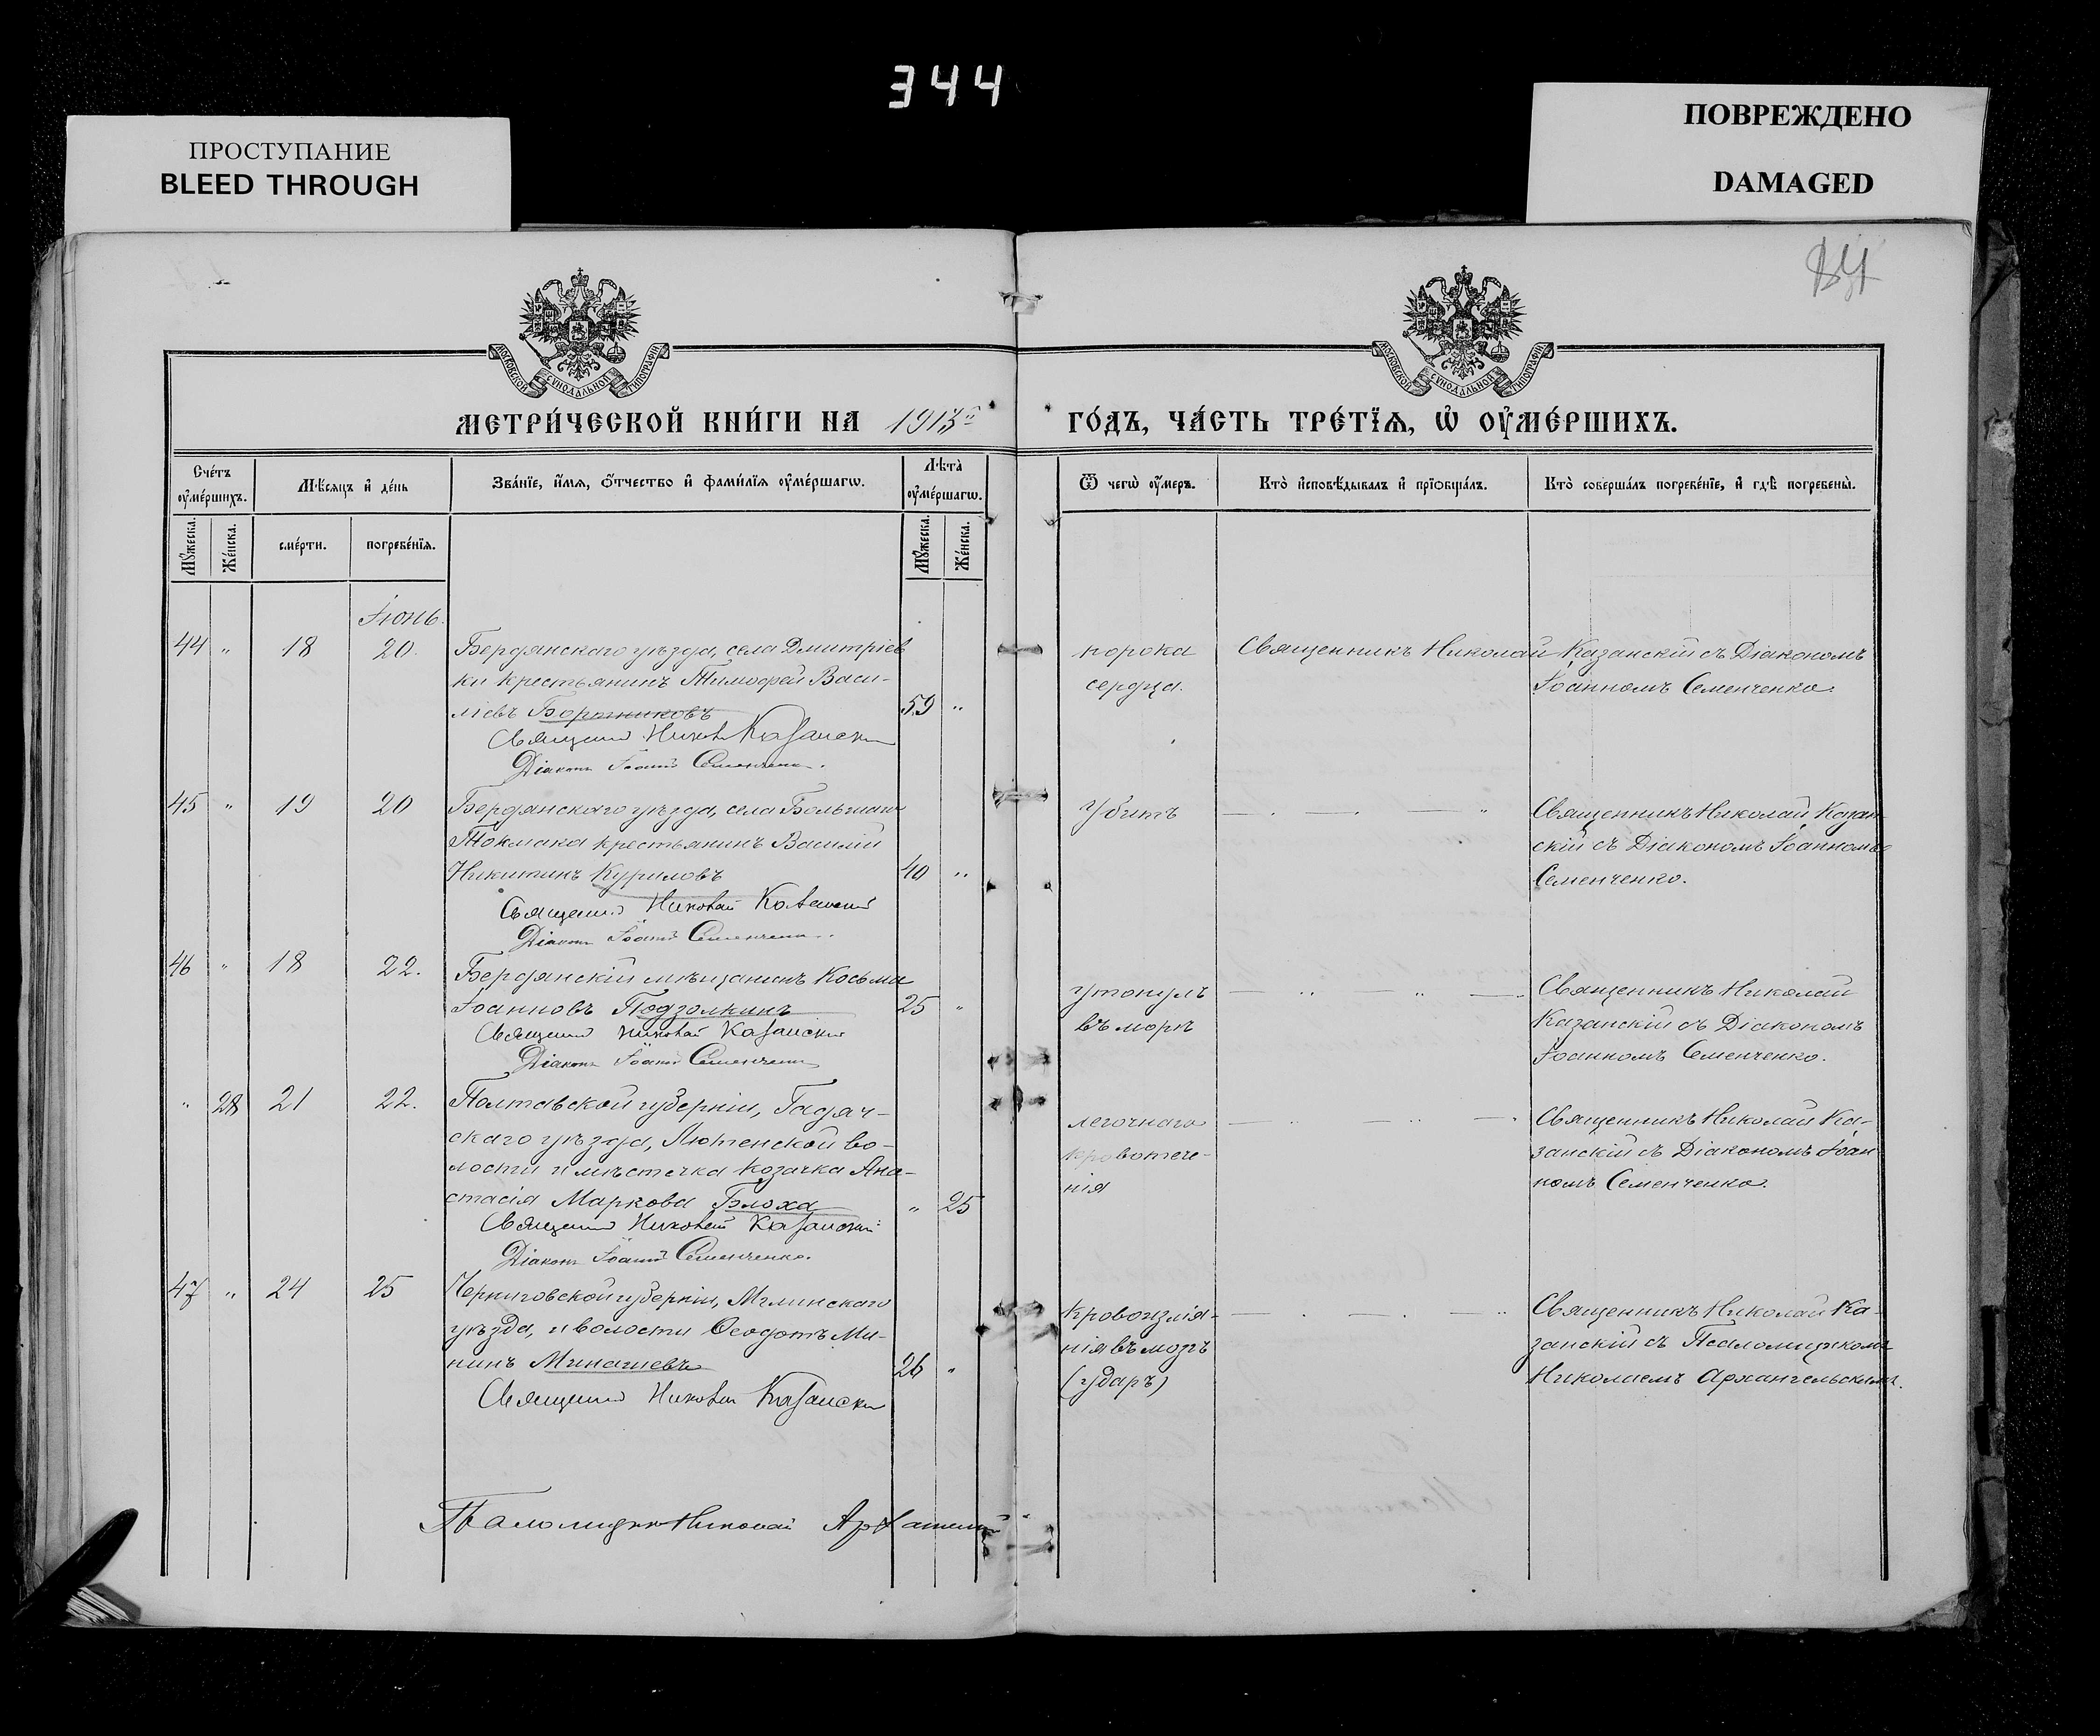 344
ПРОСТУПАНИЕ
BLEED THROUGH
ПОВРЕЖДЕНО
DAMAGED
МОСКОВСКОЙ СѴНОДАЛЬНОЙ ТИПОГРАФІИ
МОСКОВСКОЙ СѴНОДАЛЬНОЙ ТИПОГРАФІИ
МЕТРИ́ЧЕСКОЙ КНИ́ГИ НА 1913й
ГО́ДЪ, ЧА́СТЬ ТРЕ́ТЇѦ, Ѡ҆ ОУ҆МЕ́РШИХЪ.
Сче́тъ оу҆ме́ршихъ.
Мѣ́сяцъ и҆ де́нь
Зва́нїе, и҆́мѧ, ѻ҆́тчество и҆ фами́лїѧ оу҆ме́ршагѡ.
Лѣ́та оу҆ме́ршагѡ.
Ѿ чегѡ̀ оу҆́меръ.
Кто̀ и҆сповѣ́дывалъ и҆ прїѡбща́лъ.
Кто̀ соверша́лъ погребе́нїе, и҆ гдѣ̀ погребены̀.
Мꙋ́жеска.
Же́нска.
сме́рти.
погребе́нїѧ.
Мꙋ́жеска.
Же́нска.
Іюнь.
44 " 18 20. Бердянскаго уѣзда, села Дмитріев
ки крестьянинъ Тимофей Васи-
ліевъ Боротниковъ 59 "
Священникъ Николай Казанскій
Діаконъ Іоаннъ Семенченко.
порока
сердца.
Священникъ Николай Казанскій съ Діакономъ
Іоанномъ Семенченко.
45 " 19 20 Бердянскаго уѣзда, села Большаго
Токмака крестьянинъ Василій
Никитинъ Куриловъ 40 "
Священникъ Николай Казанскій
Діаконъ Іоаннъ Семенченко.
Убитъ
Священникъ Николай Казан-
скій съ Діакономъ Іоанномъ
Семенченко.
46 " 18 22. Бердянскій мѣщанинъ Косьма
Іоанновъ Подзолкинъ 25 "
Священникъ Николай Казанскій
Діаконъ Іоаннъ Семенченко
утонулъ
въ морѣ
Священникъ Николай
Казанскій съ Діакономъ
Іоанномъ Семенченко.
" 28 21 22. Полтавской губерніи, Гадяч-
скаго уѣзда, Лютенской во-
лости и мѣстечка козачка Ана-
стасія Маркова Блоха " 25
Священникъ Николай Казанскій
Діаконъ Іоаннъ Семенченко.
легочнаго
кровотече-
нія
Священникъ Николай Ка-
занскій съ Діакономъ Іоан
номъ Семенченко.
47 " 24 25 Черниговской губерніи, Мглинскаго
уѣзда, и волости Ѳеодотъ Ми-
нинъ Миначевъ 26 "
Священникъ Николай Казанскій
кровоизлія-
нія въ мозгъ
(ударъ)
Священникъ Николай Ка-
занскій съ Псаломщикомъ
Николаемъ Архангельскимъ.
Псаломщикъ Николай Архангельскій